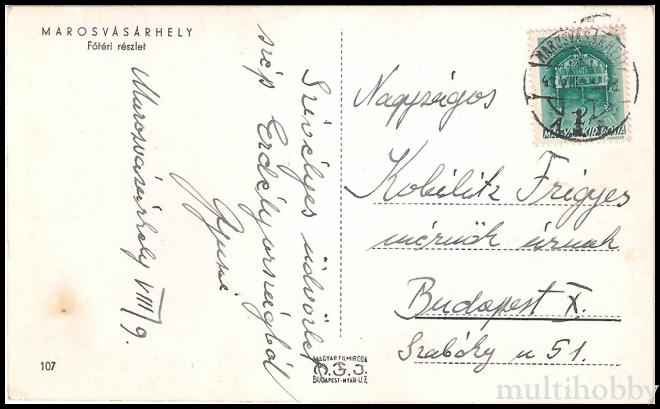 MAROSVÁSÁRHELY
Főtéri részlet
Marosvásárhely VIII/9.
Szívélyes üdvözlet
szép Erdélyországból
Gyuszi
107
MAGYAR FILMIRODA
BUDAPEST-NYÁR-U.7.
MAROSVÁSÁRHELY
MAGYAR KIR. POSTA
Nagyságos
Kobélitz Frigyes
mérnök úrnak
Budapest X.
Szabóky u 51.
multihobby